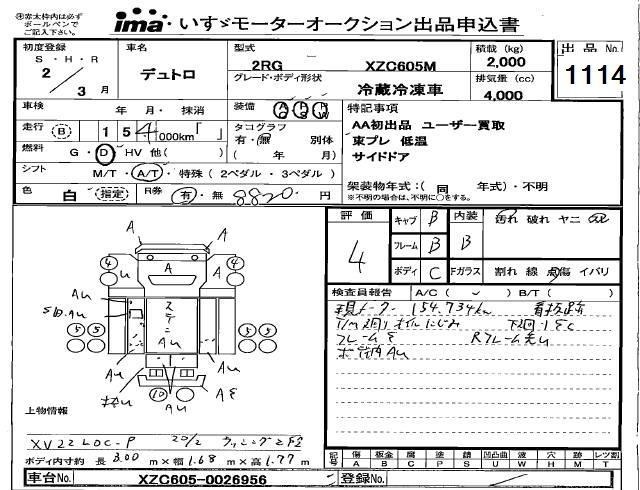 ㊟赤太枠内は必ず
ボールペンで
ご記入下さい。
ima いすゞモーターオークション出品申込書
初度登録 車名 型式 積載 (kg) 出品 No.
S・H・R
2/3月 デュトロ 2RG XZC605M 2,000 1114
グレード・ボディ形状 排気量 (cc)
冷蔵冷凍車 4,000
車検 年 月・抹消 装備 特記事項
走行 B 154,000km「 」 タコグラフ AA初出品 ユーザー買取
有・無 別体 東プレ 低温
燃料 G・D・HV 他( ) ( 年 月) サイドドア
シフト M/T・A/T・特殊 (2ペダル・3ペダル)
架装物年式:( 同 年式)・不明
※不明の場合は、不明に○をする。
色 白 指定 R券 有・無 8820 円
評価 キャブ B 内装 汚れ 破れ ヤニ
4 フレーム B B
ボディ C Fガラス 割れ 線 点傷 イバリ
検査員報告 A/C( ) B/T( )
現メーター 154,734km 看板跡
T/M 廻りオイルにじみ 下廻りEC
フレームE
ボデー内AU
A
A A
4 U A 4
AU
Sib.AU
5 5 ステン 5 5
AU
AU AU
10
AU AE
上物情報
XV22LDC-P 20/2
ボディ内寸約 長 3.00 m×幅 1.68 m×高 1.77 m
記号 傷 A 板金 B 腐 C 塗 P 錆 S 凹凸曲 U 波 W 穴 H 跡 M レツ割 T
車台No. XZC605-0026956 登録No.